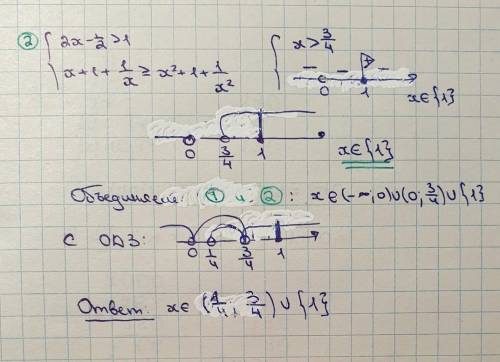 ② { 2x - 1/2 > 1 { x > 3/4
x + 1 + 1/x ≥ x² + 1 + 1/x²
− − +
0 1
x∈{1}
0 3/4 1 x∈{1}
Объединяем: ① и ②: x∈(-∞;0)∪(0;3/4)∪{1}
С ОДЗ: 0 1/4 3/4 1
Ответ: x∈(1/4; 3/4)∪{1}